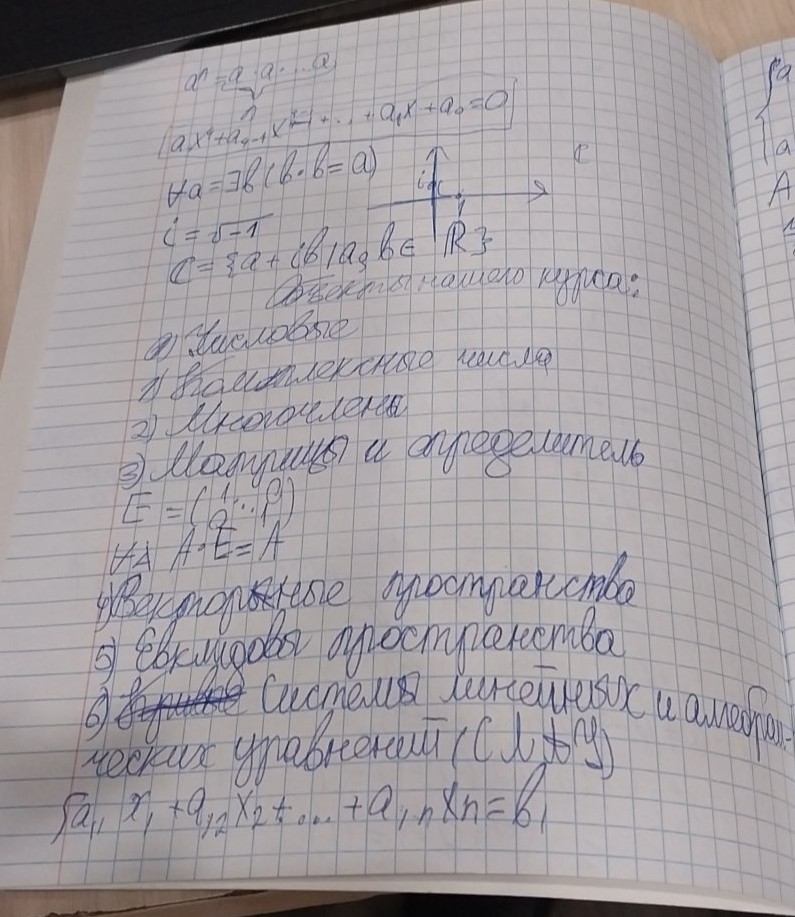 aⁿ = a·a·...a
n
axⁿ + aₙ₋₁xⁿ⁻¹ + ... + a₁x + a₀ = 0
∀a = ∃b (b·b = a)
i
1
C
i = √-1
C = {a + ib | a, b ∈ R}
Объекты нашего курса:
0) Числовые
1) Комплексные числа
2) Многочлены
3) Матрицы и определитель
E = (
∀A A·E = A
4) Векторные пространства
5) Евклидовы пространства
6) Системы линейных и алгебраи-
ческих уравнений (СЛАУ)
{a₁₁ x₁ + a₁₂x₂ + ... + a₁ₙxₙ = b₁
{a
a
A